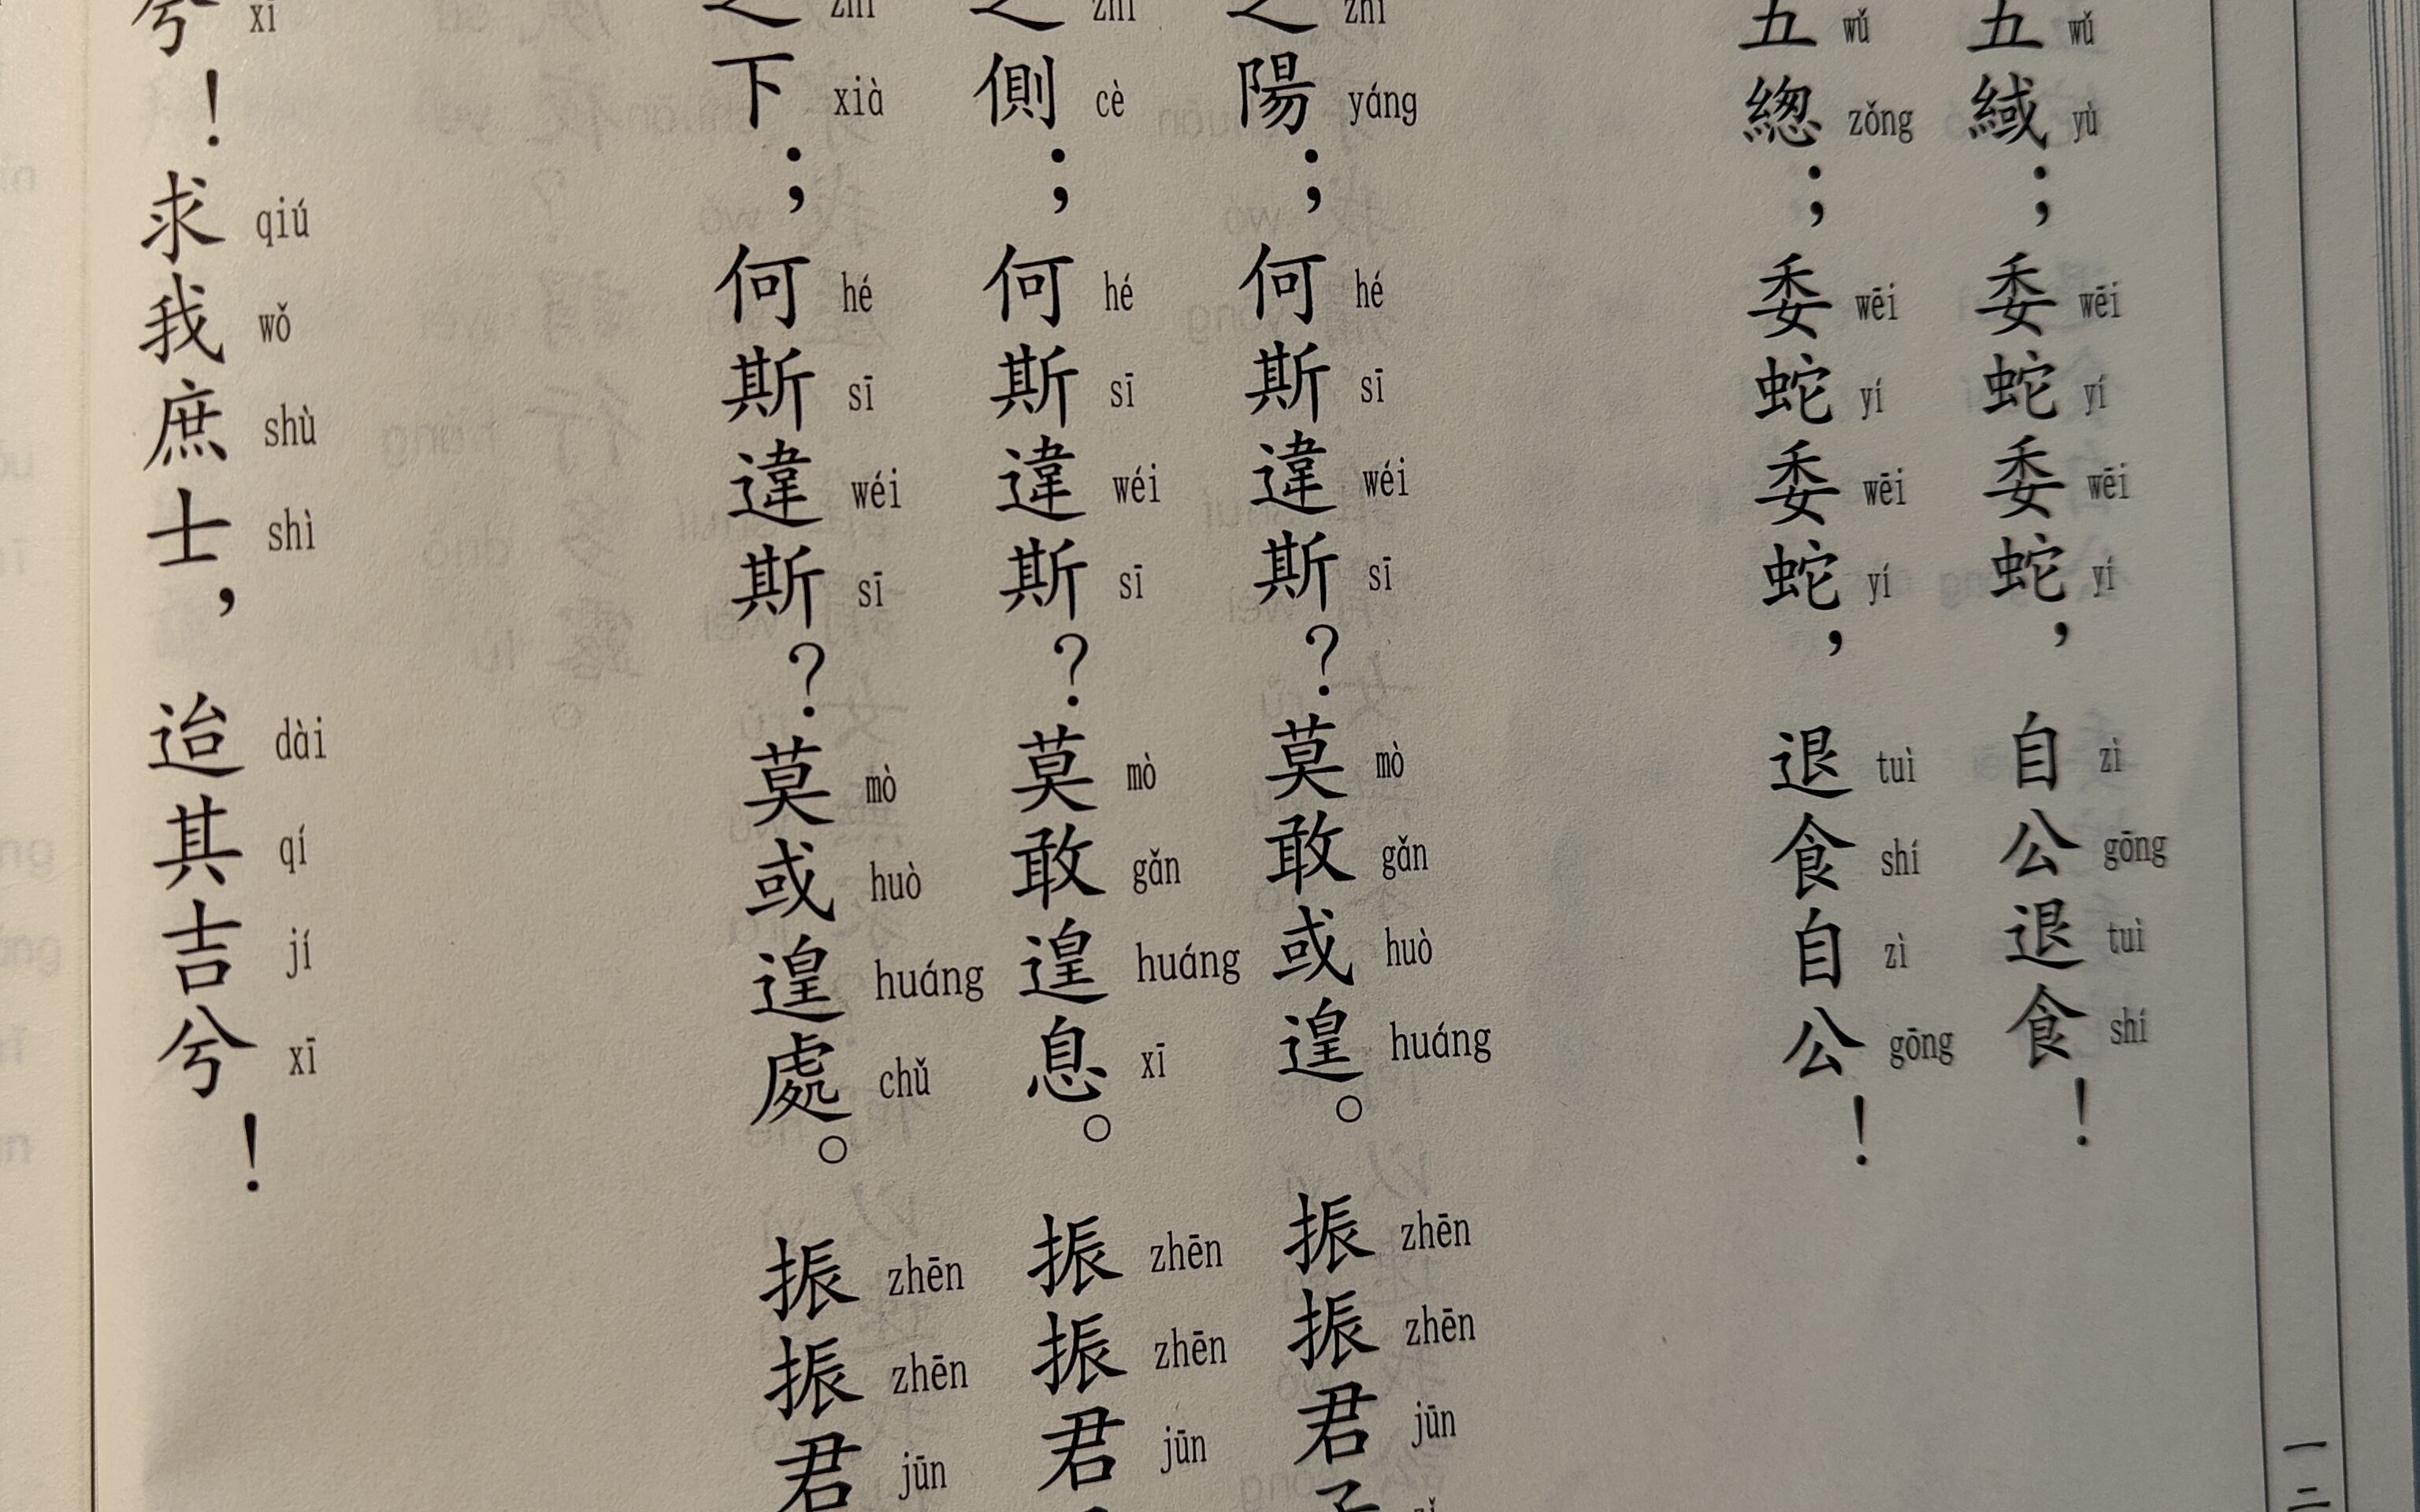 五緎；委蛇委蛇，自公退食！
wǔ yù wēi yí wēi yí zì gōng tuì shí
五緫；委蛇委蛇，退食自公！
wǔ zǒng wēi yí wēi yí tuì shí zì gōng
之陽；何斯違斯？莫敢或遑。振振君子
zhī yáng hé sī wéi sī mò gǎn huò huáng zhēn zhēn jūn zǐ
之側；何斯違斯？莫敢遑息。振振君
zhī cè hé sī wéi sī mò gǎn huáng xī zhēn zhēn jūn
之下；何斯違斯？莫或遑處。振振君
zhī xià hé sī wéi sī mò huò huáng chǔ zhēn zhēn jūn
兮！求我庶士，迨其吉兮！
xī qiú wǒ shù shì dài qí jí xī